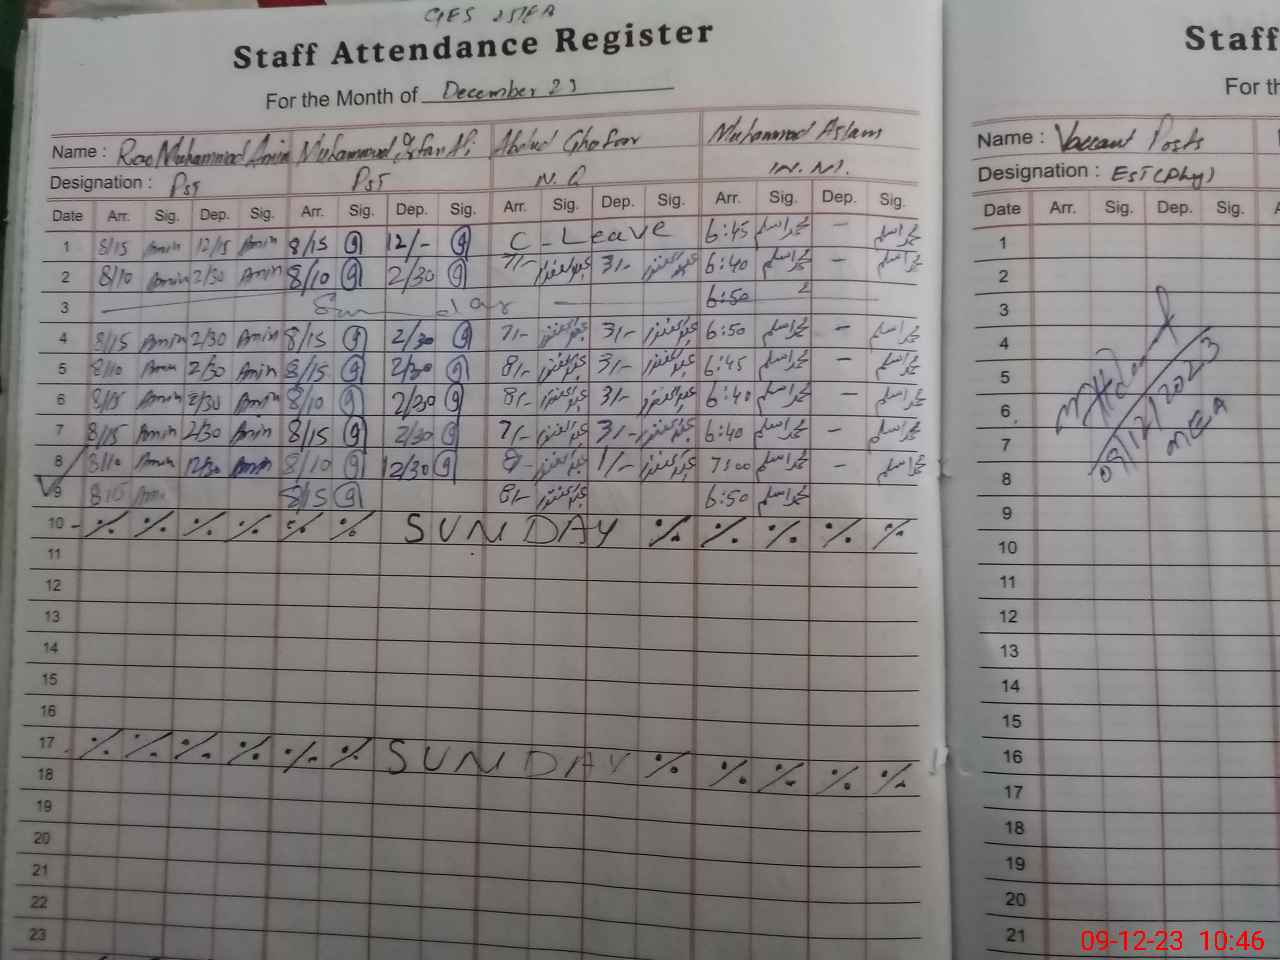 GES 25/EB
Staff Attendance Register
For the Month of December 23
Name : Rao Muhammad Amin Muhammad Irfan Ali Abdul Ghafoor Muhammad Aslam
Designation : PST PST N.Q
Date Arr. Sig. Dep. Sig. Arr. Sig. Dep. Sig. Arr. Sig. Dep. Sig. Arr. Sig. Dep. Sig.
1 8/15 Amin 12/15 Amin 8/15 12/- C - Leave 6:45 محمد اسلم - محمد اسلم
2 8/10 Amin 2/30 Amin 8/10 2/30 7/- عبدالغفور 3/- عبدالغفور 6:40 محمد اسلم - محمد اسلم
3 Sunday 6:50
4 8/15 Amin 2/30 Amin 8/15 2/30 7/- عبدالغفور 3/- عبدالغفور 6:50 محمد اسلم - محمد اسلم
5 8/10 Amin 2/30 Amin 8/15 2/30 8/- عبدالغفور 3/- عبدالغفور 6:45 محمد اسلم - محمد اسلم
6 8/15 Amin 2/30 Amin 8/10 2/30 8/- عبدالغفور 3/- عبدالغفور 6:40 محمد اسلم - محمد اسلم
7 8/15 Amin 2/30 Amin 8/15 2/30 7/- عبدالغفور 3/- عبدالغفور 6:40 محمد اسلم - محمد اسلم
8 8/10 Amin 12/30 Amin 8/10 12/30 8/- عبدالغفور 1/- عبدالغفور 7:00 محمد اسلم - محمد اسلم
9 8/15 Amin 8/15 8/- عبدالغفور 6:50 محمد اسلم
10 SUNDAY
11
12
13
14
15
16
17 SUNDAY
18
19
20
21
22
23
Staff
For th
Name : Vaccant Posts
Designation : EST(Phy)
Date Arr. Sig. Dep. Sig.
1
2
3
4
5
6
7
8
9
10
11
12
13
14
15
16
17
18
19
20
21
09/12/2023
MEA
09-12-23 10:46